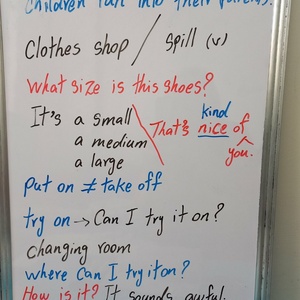 Children run into their parents.
Clothes shop / spill (v)
What size is this shoes?
It's a small
a medium
a large
That's nice of you.
kind
Put on ≠ take off
try on → Can I try it on?
Changing room
where Can I try it on?
How is it? It sounds awful